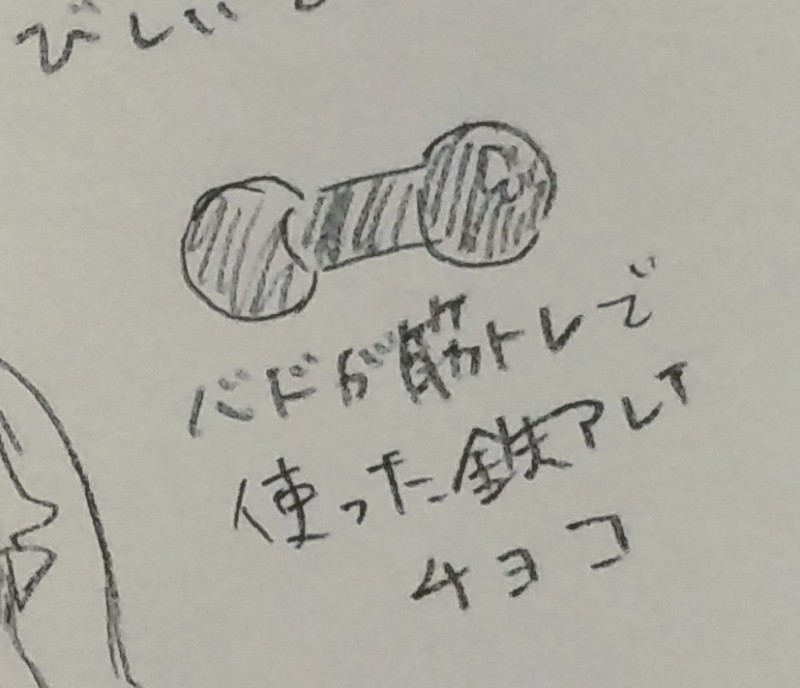 びしい
バドが筋トレで
使った鉄アレイ
チョコ